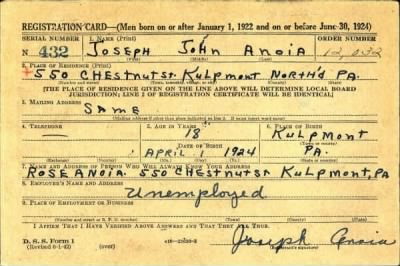 REGISTRATION CARD—(Men born on or after January 1, 1922 and on or before June 30, 1924)
SERIAL NUMBER 1. NAME (Print) ORDER NUMBER
N 432 JOSEPH JOHN ANOIA 12,032
(First) (Middle) (Last)
2. PLACE OF RESIDENCE (Print)
550 CHESTNUT ST. KULPMONT NORTH'D PA.
(Number and street) (Town, township, village, or city) (County) (State)
[THE PLACE OF RESIDENCE GIVEN ON THE LINE ABOVE WILL DETERMINE LOCAL BOARD
JURISDICTION; LINE 2 OF REGISTRATION CERTIFICATE WILL BE IDENTICAL]
3. MAILING ADDRESS
SAME
4. TELEPHONE 5. AGE IN YEARS 6. PLACE OF BIRTH
— 18 KULPMONT
DATE OF BIRTH
APRIL 1 1924 PA.
(Exchange) (Number) (Mo.) (Day) (Yr.) (State or country)
7. NAME AND ADDRESS OF PERSON WHO WILL ALWAYS KNOW YOUR ADDRESS
ROSE ANOIA. 550 CHESTNUT ST KULPMONT, PA
8. EMPLOYER'S NAME AND ADDRESS
Unemployed
9. PLACE OF EMPLOYMENT OR BUSINESS
(Number and street or R. F. D. number) (Town) (County) (State)
I AFFIRM THAT I HAVE VERIFIED ABOVE ANSWERS AND THAT THEY ARE TRUE.
D. S. S. Form 1
(Revised 6-1-42) (over) Joseph Anoia